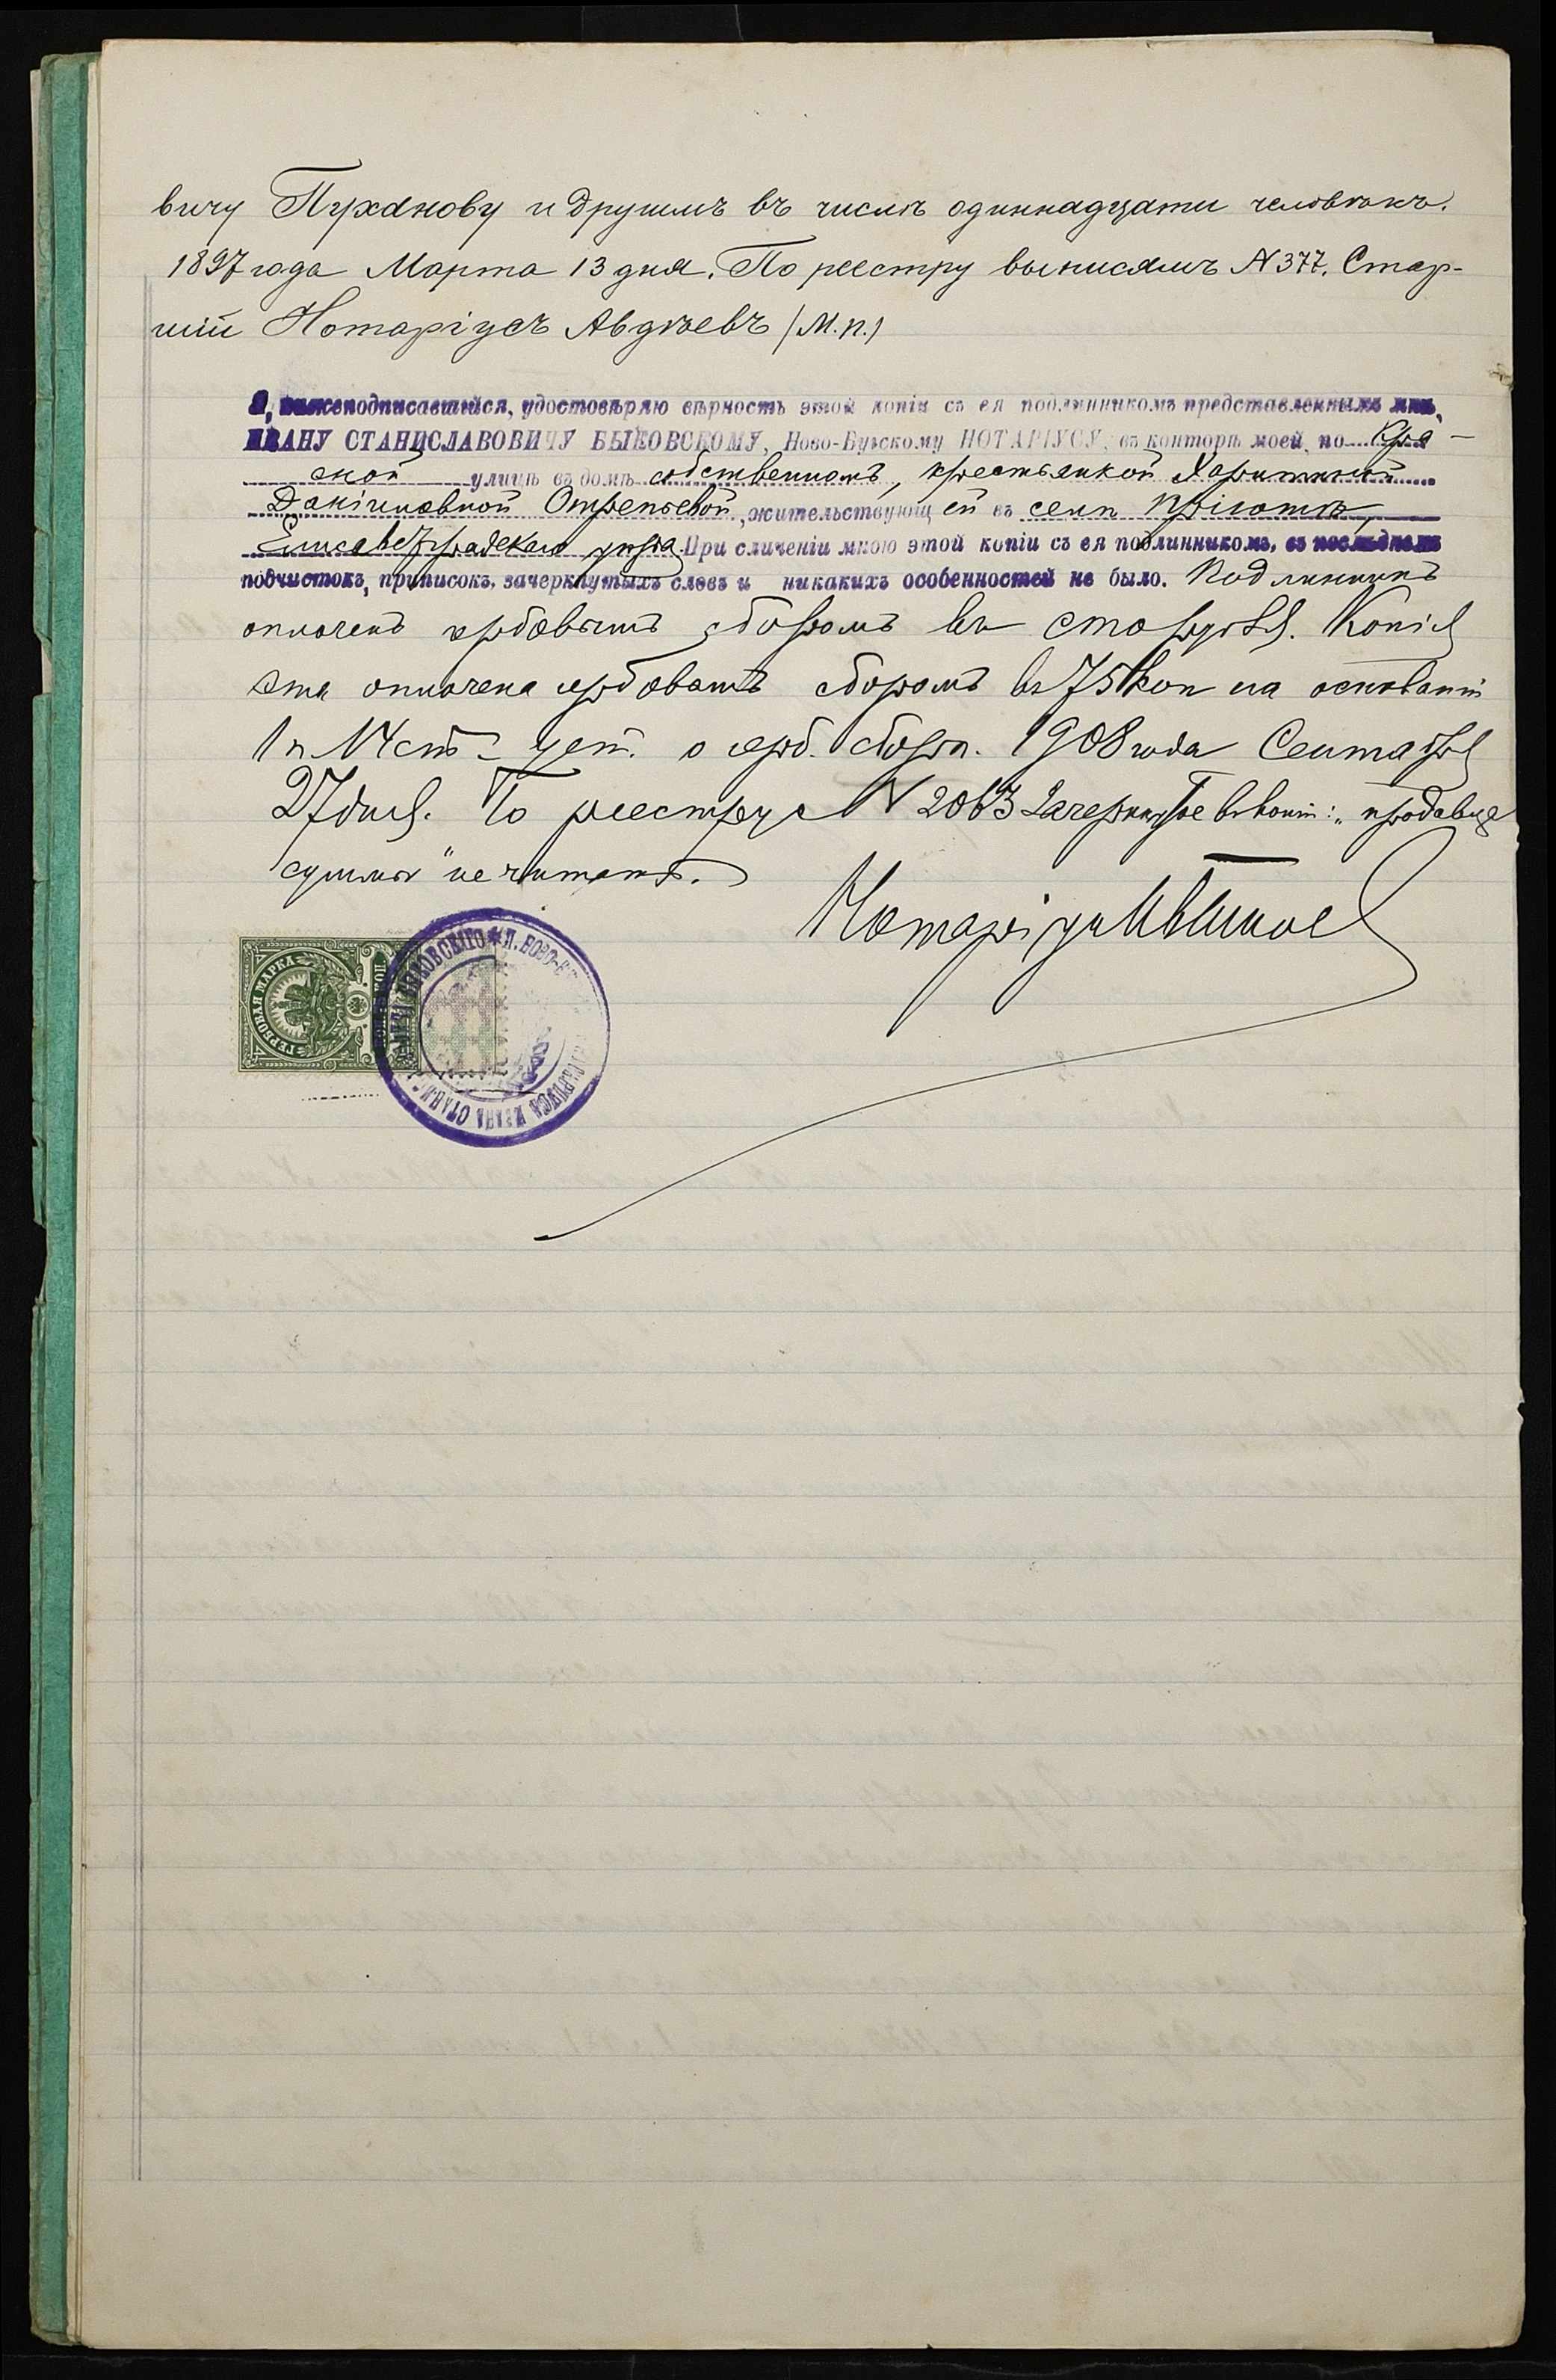 вичу Пуханову и другимъ въ числѣ одиннадцати человѣкъ.
1897 года Марта 13 дня. По реестру выписямъ N 377. Стар-
шій Нотаріусъ Авдѣевъ /М.п./
Я, нижеподписавшійся, удостовѣряю вѣрность этой копіи съ ея подлинникомъ представленнымъ мнѣ,
ИВАНУ СТАНИСЛАВОВИЧУ БЫКОВСКОМУ, Ново-Бугскому НОТАРІУСУ, въ конторѣ моей, по
ской улицѣ въ домѣ собственномъ, крестьянкой Харитиной
Даніиловной Отрепьевой, жительствующ ей въ селѣ
Елисаветградскаго уѣзда. При сличеніи мною этой копіи съ ея подлинникомъ, въ послѣднемъ
подчистокъ, приписокъ, зачеркнутыхъ словъ и никакихъ особенностей не было. Подлинникъ
оплаченъ гербовымъ сборомъ въ сто рублей. Копія
эта оплачена гербовымъ сборомъ въ 75 коп на основаніи
1 п 14 ст. Уст. о герб. сборѣ. 1908 года Сентября
27 дня. По реестру N 2063 Зачеркнутое въ копіи: „продавцѣ
суммы" не читать.
Нотаріусъ
ГЕРБОВАЯ МАРКА
БЫКОВСКАГО * П. НОВО-
НОТАРІУСА ИВАНА СТАНИС